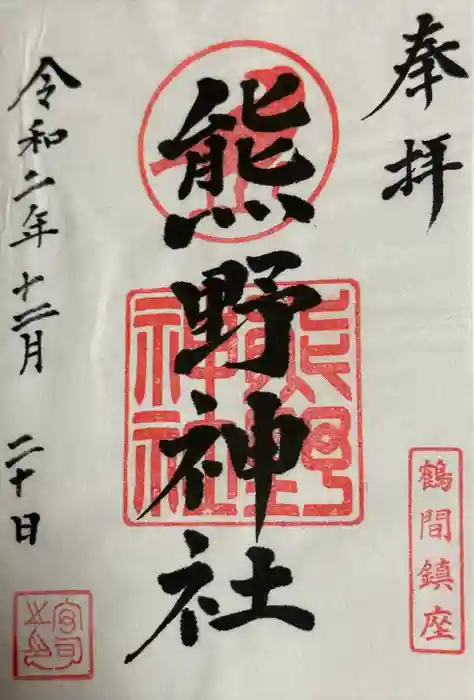 奉拝
鶴間鎮座
熊野神社
熊野
神社
令和二年十二月二十日
宮司之印